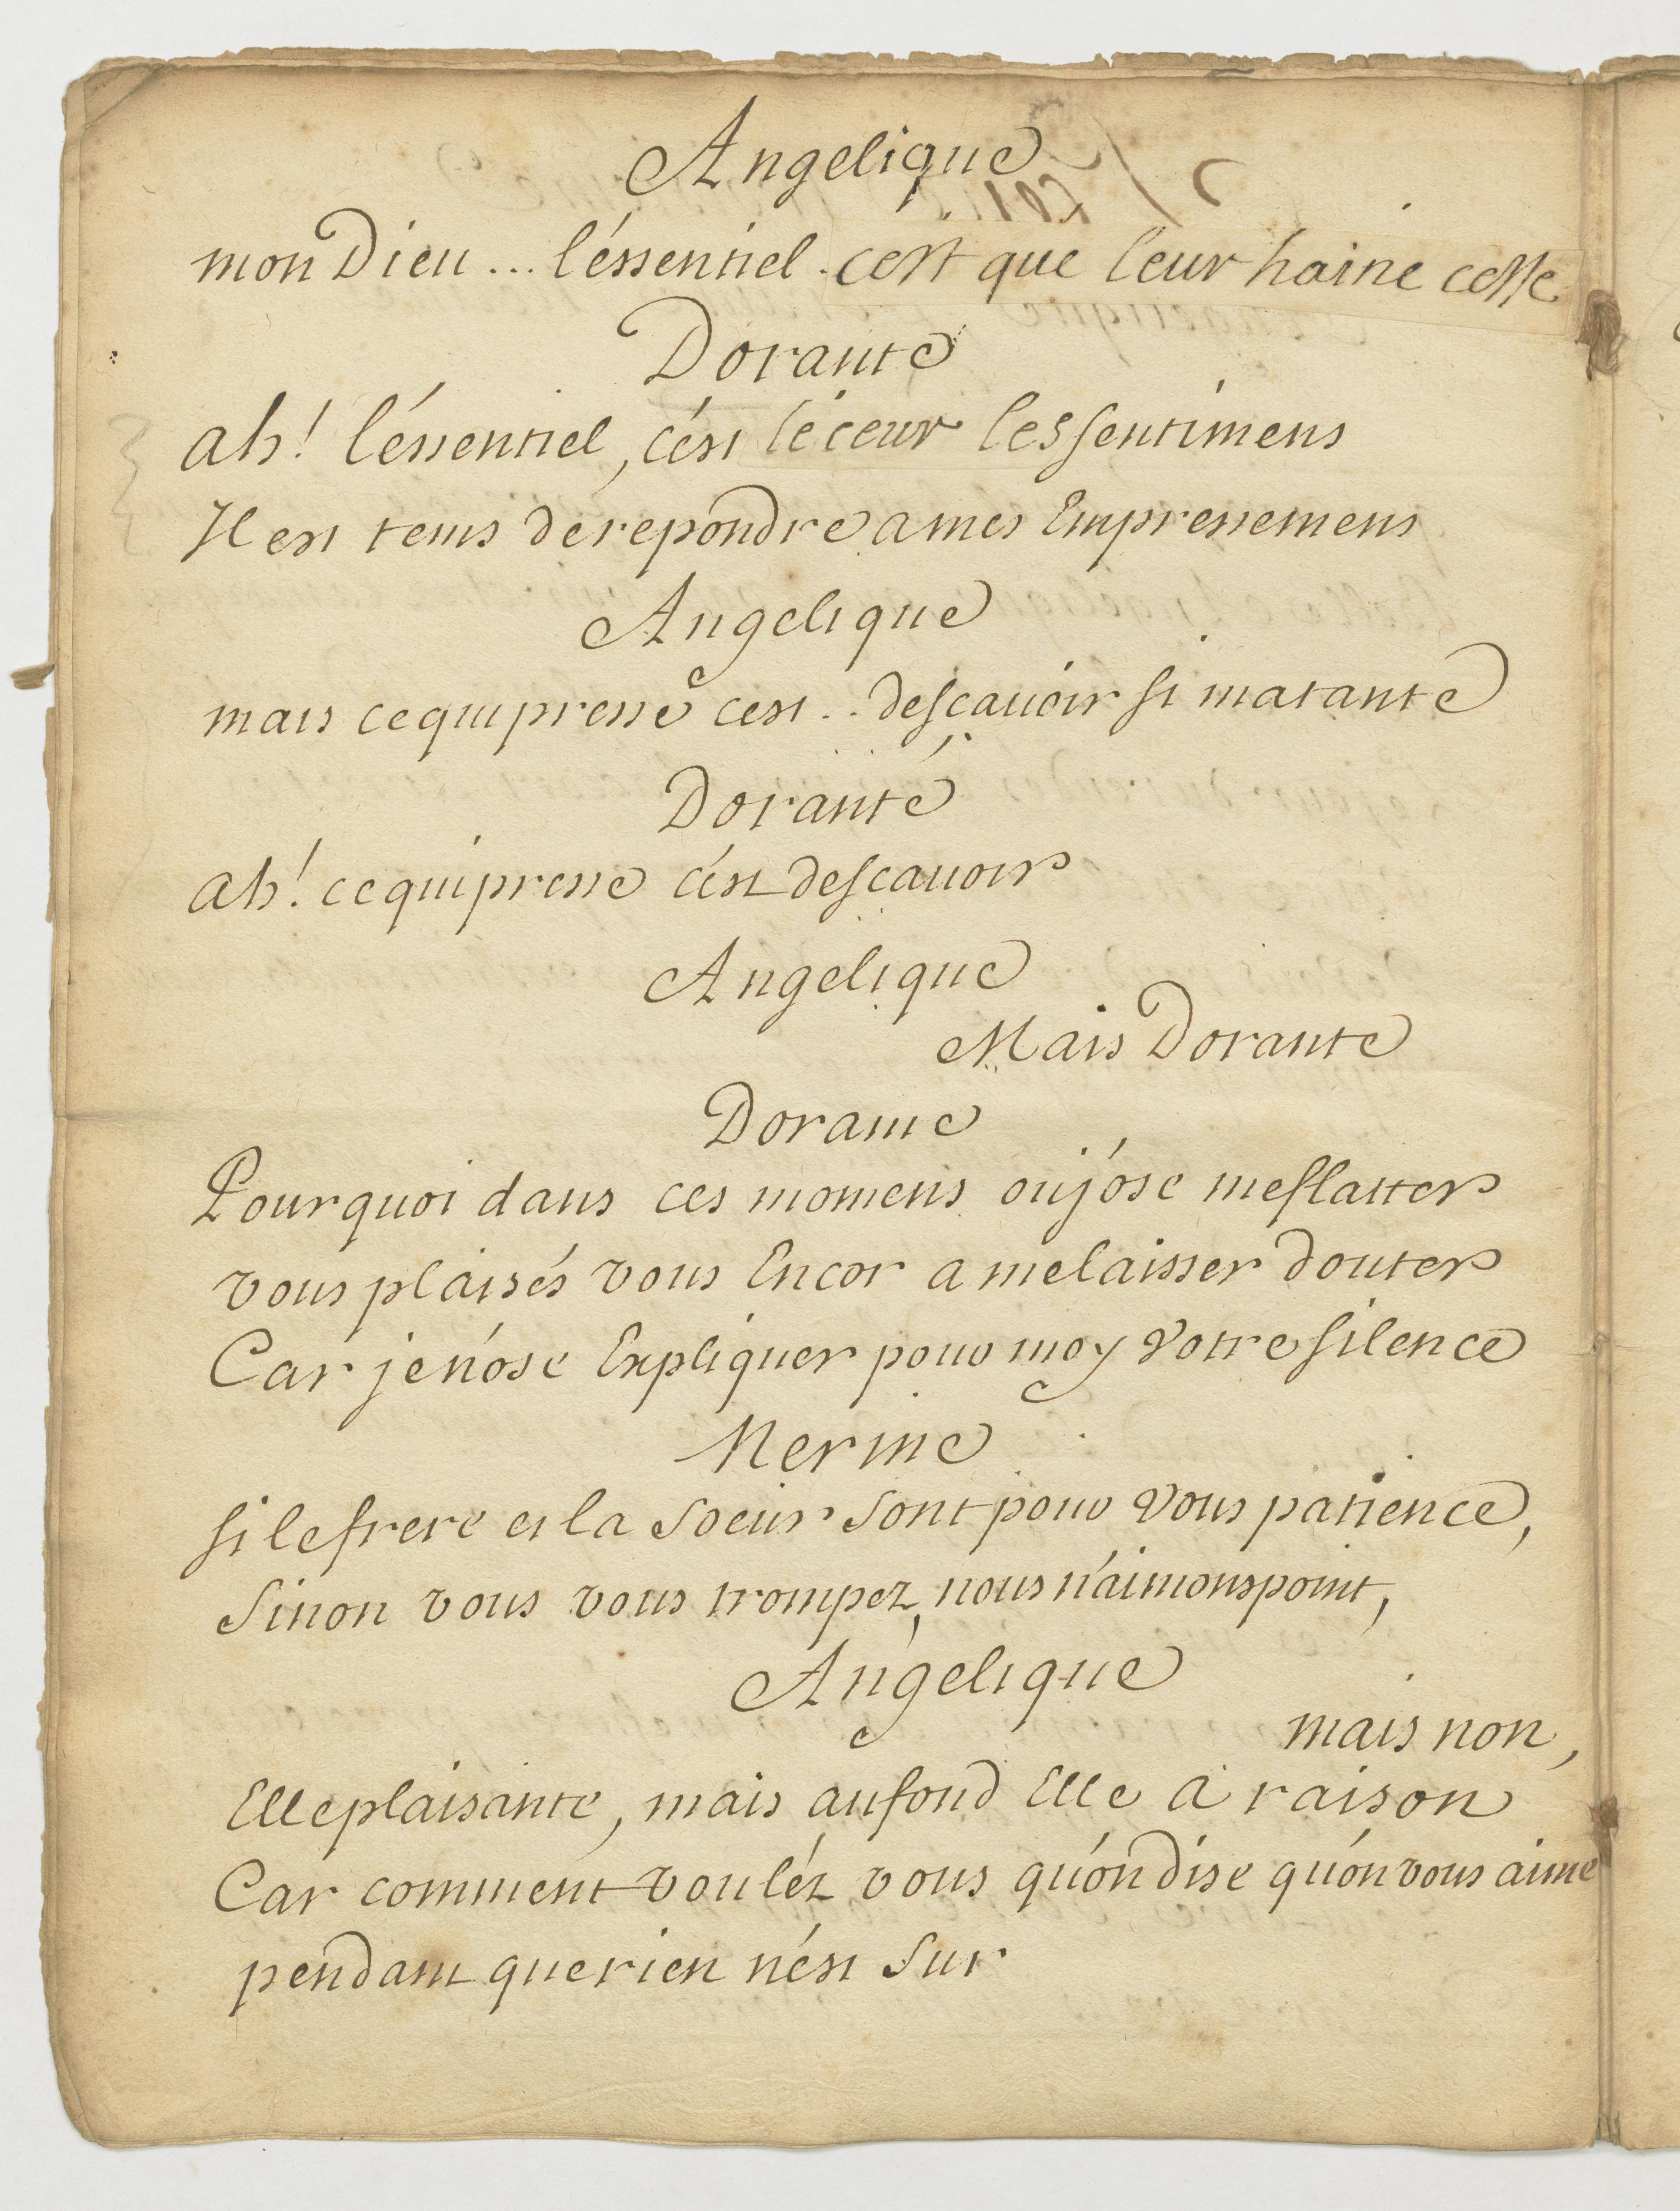 Angelique
mon Dieu... l'éssentiel. cest que leur haine cesse
Dorante
ah! l'éssentiel, c'ést le ceur les sentimens
Il est tems de repondre a mes Empressemens
Angelique
mais ce qui presse cest.. de sçauoir si ma tante
Dorante
ah! ce qui presse c'ést de scauoir
Angelique
Mais Dorante
Dorante
Pourquoi dans ces momens ou j'óse me flatter
vous plaisés vous Encor a me laisser douter
Car je n'óse Expliquer pour moy votre silence
Nerine
si le frere et la soeur sont pour vous patience,
sinon vous vous trompez, nous n'aimons point,
Angelique
mais non,
Elle plaisante, mais au fond Elle a raison
Car comment voulés vous qu'ón dise qu'ón vous aime
pendant que rien n'ést sur